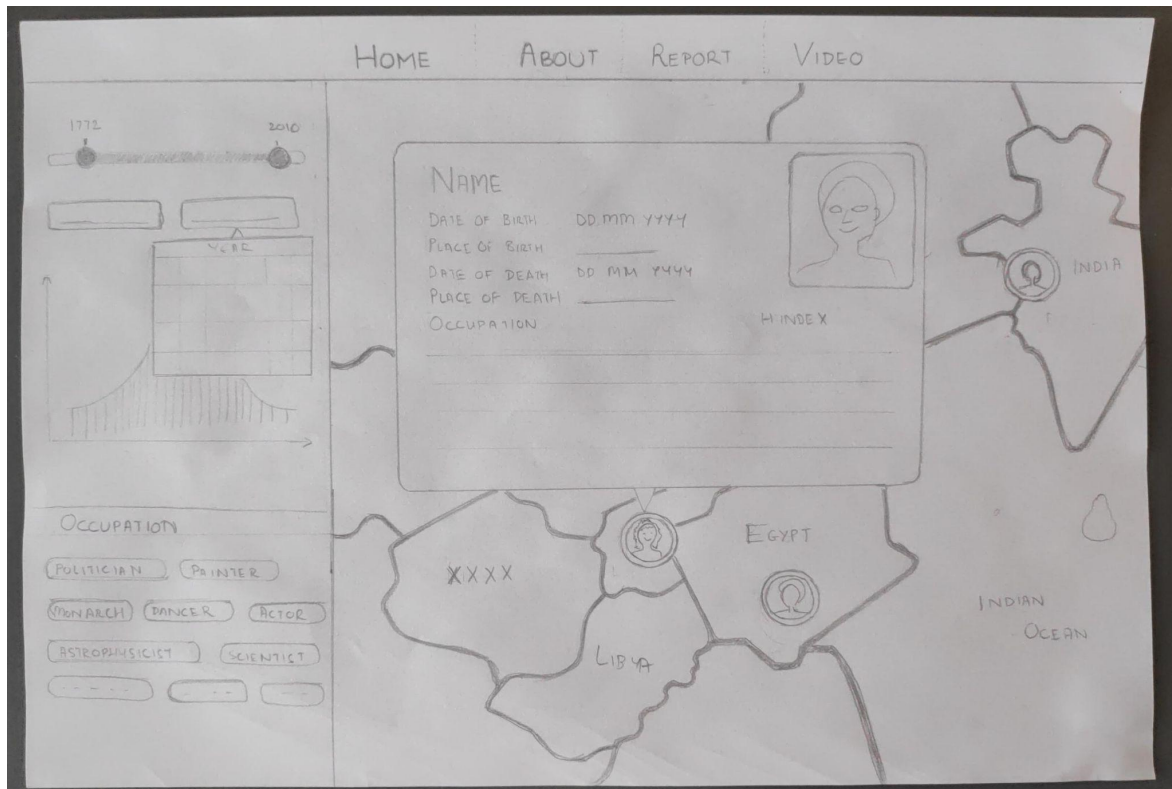 HOME ABOUT REPORT VIDEO
1772 2010
YEAR
OCCUPATION
POLITICIAN PAINTER
MONARCH DANCER ACTOR
ASTROPHYSICIST SCIENTIST
NAME
DATE OF BIRTH DD MM YYYY
PLACE OF BIRTH
DATE OF DEATH DD MM YYYY
PLACE OF DEATH
OCCUPATION H INDEX
INDIA
EGYPT
XXXX
LIBYA
INDIAN
OCEAN